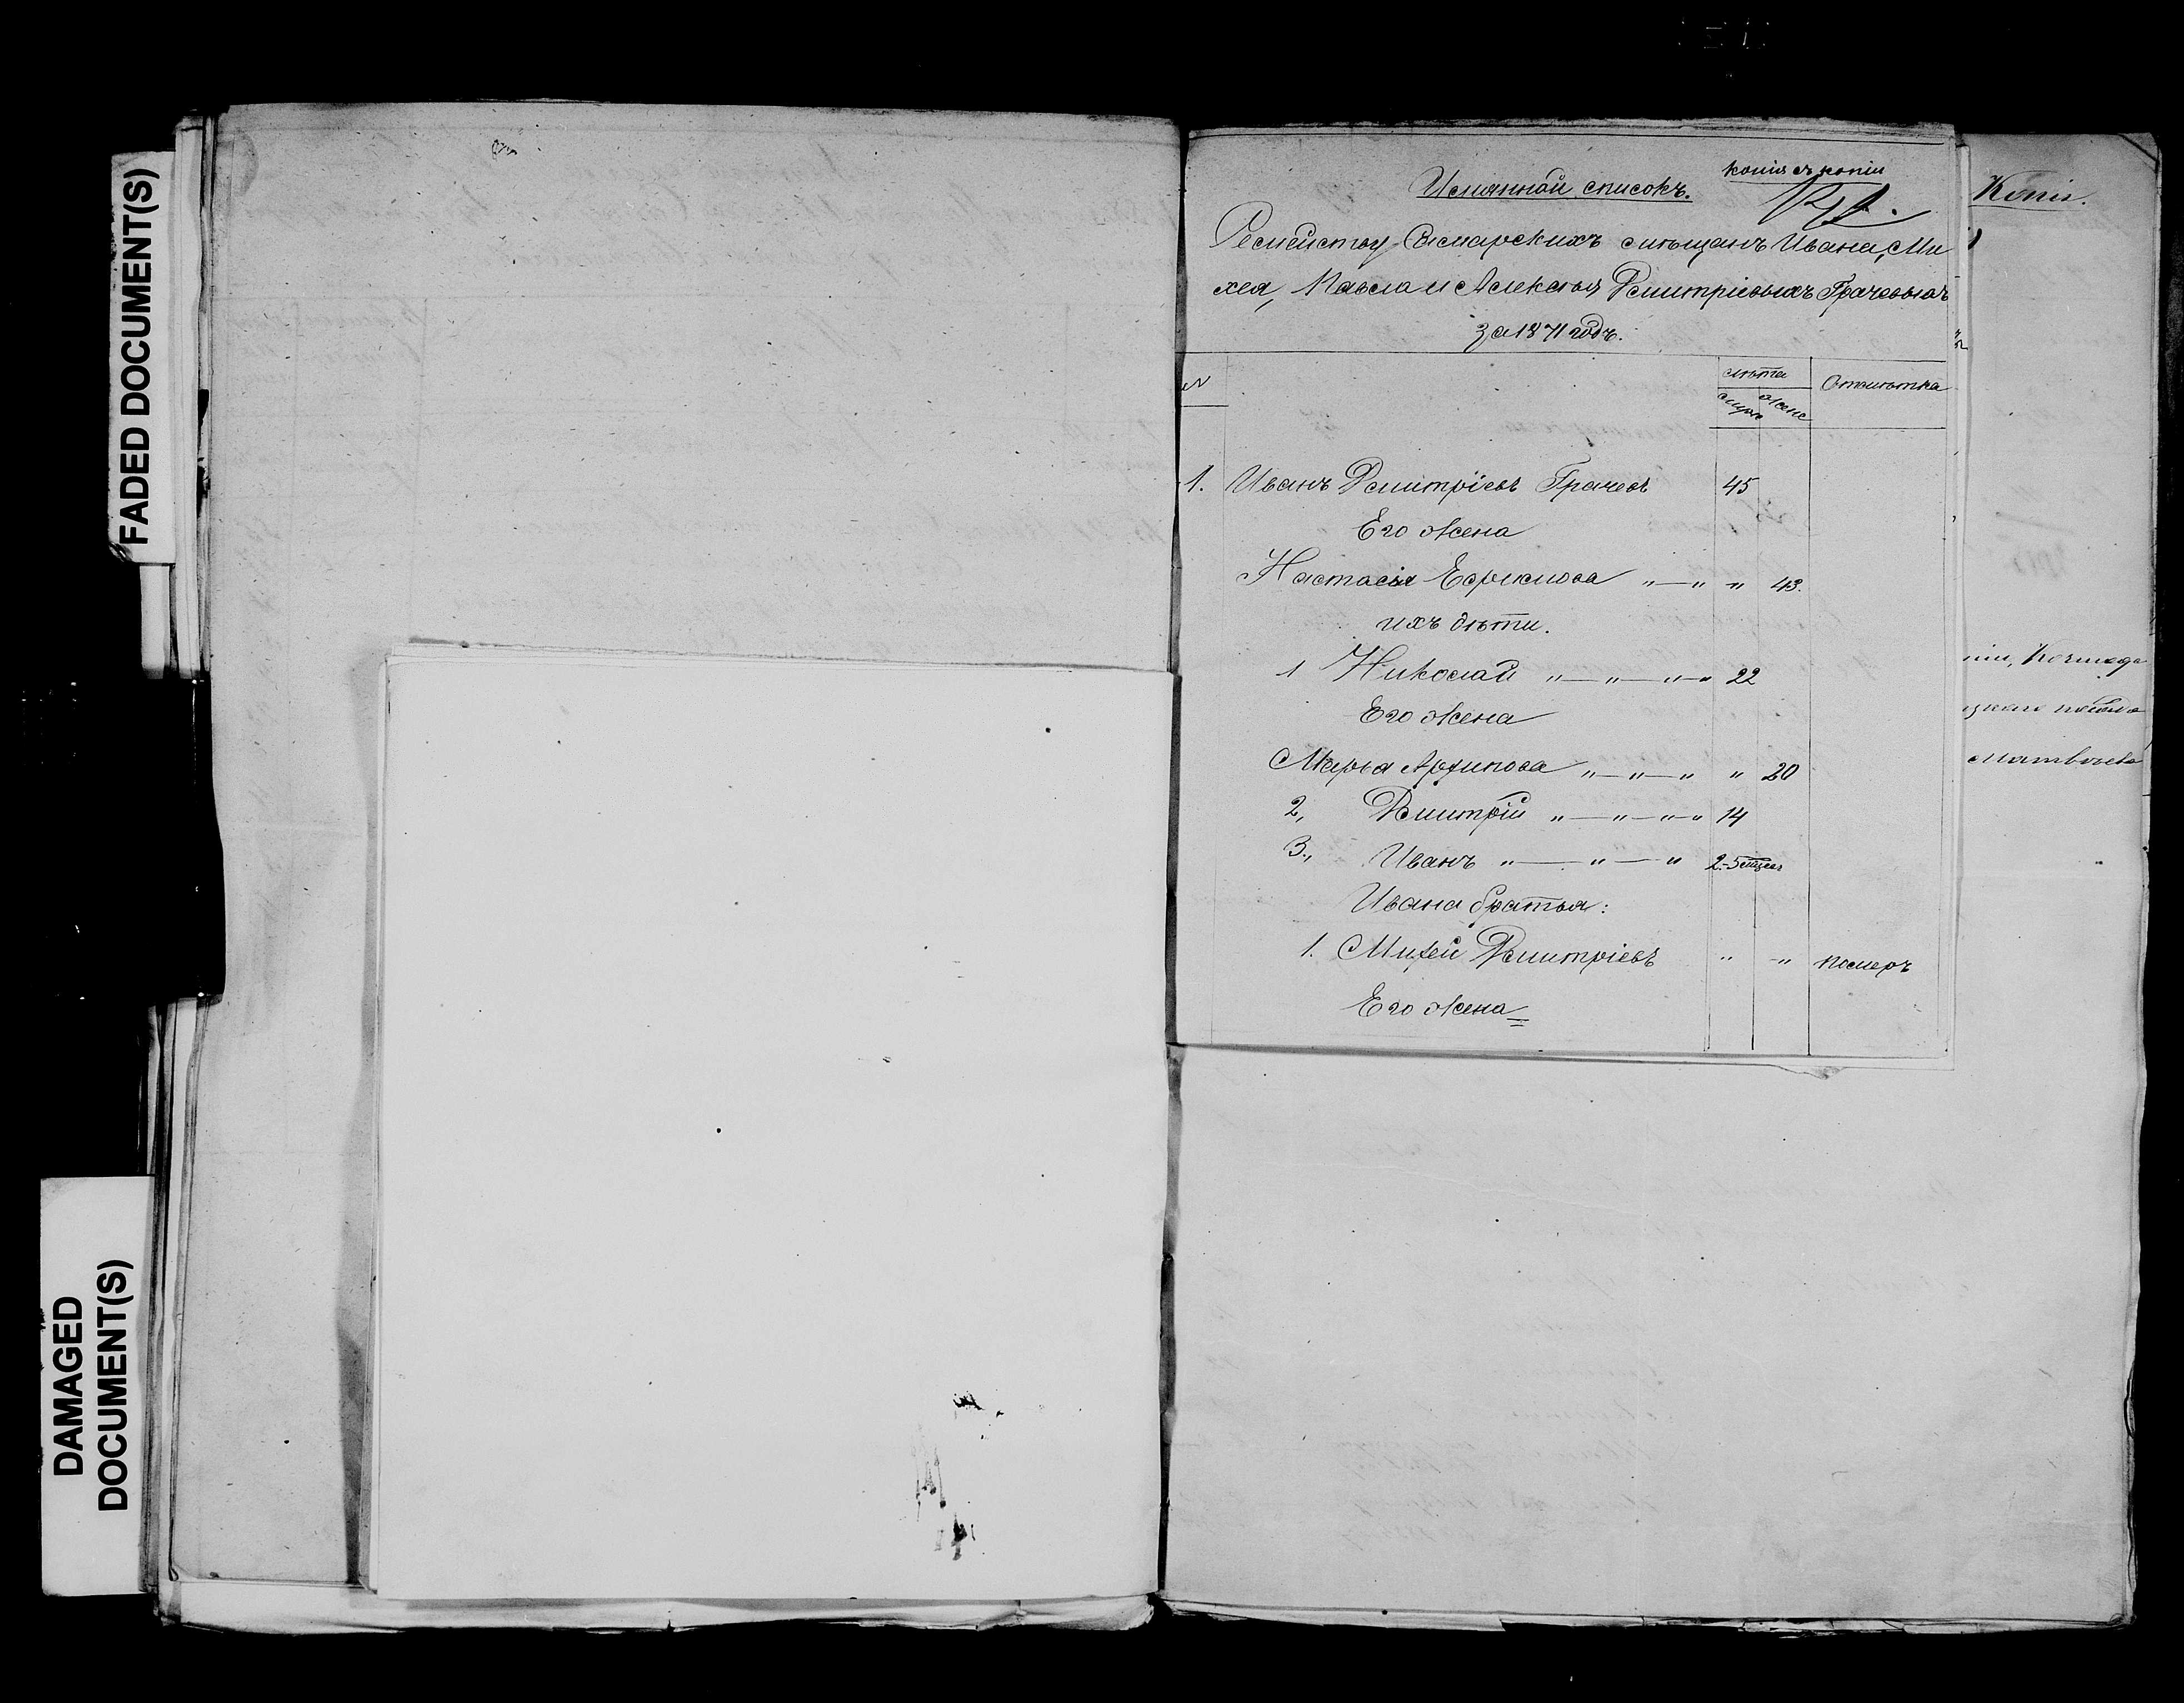 FADED DOCUMENT(S)
DAMAGED
DOCUMENT(S)
копия съ копiи
Имянной списокъ.
Семейству Самарскихъ мѣщанъ Ивана, Ми
хея, Павла и Алексѣя Дмитрiевыхъ Грачевыхъ
за 1871 годъ.
№
лѣта
муж
женс
Отмѣтка
1. Иванъ Дмитрiевъ Грачевъ 45
Его жена
Настасья Ефимова " — " " 43.
ихъ дѣти.
1 Николай " — " — " — " 22
Его жена
Марья Архипова " — " — " " 20
2, Дмитрiй " — " — " — " 14
3., Иванъ " — " — " 2-5 мѣсе
Ивана братья:
1. Михей Дмитрiевъ " " померъ
Его жена =
Копiя.